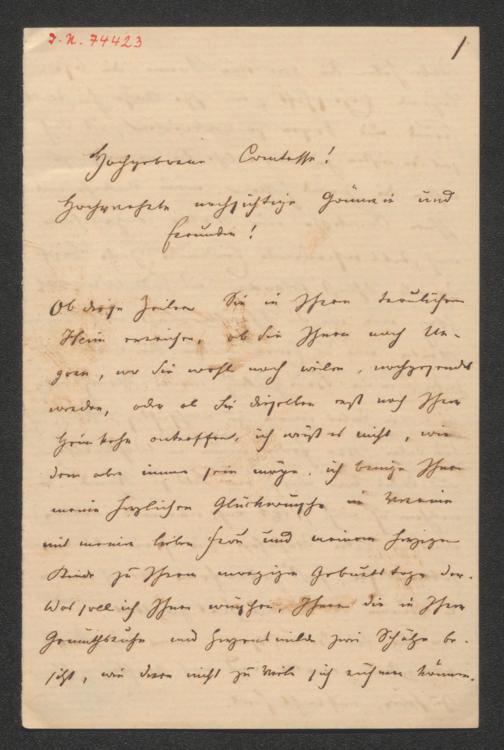 I. N. 74423
1
Hochgeborene Comtesse!
Hochverehrte nachsichtige Gönnerin und
Freundin!
Ob diese Zeilen Sie in Ihrem traulichen
Heim erreichen, ob sie Ihnen nach Un-
garn, wo Sie wohl noch weilen, nachgesendet
werden, oder ob Sie dieselben erst nach Ihrer
Heimkehr antreffen, ich weiß es nicht, wie
dem aber immer sein möge, ich bringe Ihnen
meine herzlichen Glückwünsche im Vereine
mit meiner lieben Frau und meinem herzigen
Kinde zu Ihrem morgigen Geburtstage dar.
Was soll ich Ihnen wünschen, Ihnen die in Ihrer
Gemüthsruhe und Herzensmilde zwei Schätze be-
sitzt, wie deren nicht zu Viele sich rühmen können.